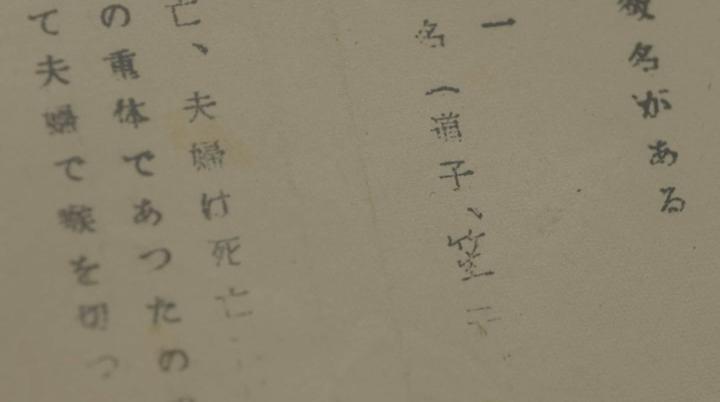 名がある
一
名(道子、笠子
亡、夫婦は死亡
の重体であつたの
て夫婦で喉を切つ